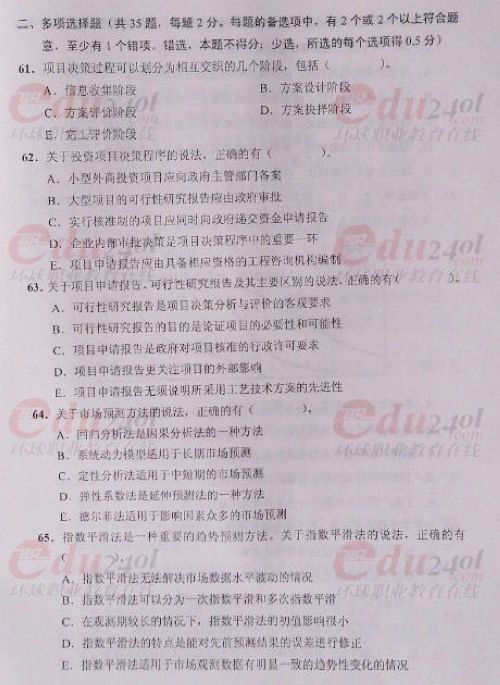 二、多项选择题（共 35 题，每题 2 分。每题的备选项中，有 2 个或 2 个以上符合题
意，至少有 1 个错项。错选，本题不得分；少选，所选的每个选项得 0.5 分）
61．项目决策过程可以划分为相互交织的几个阶段，包括（　　）。
A．信息收集阶段　　B．方案设计阶段
C．方案评价阶段　　D．方案抉择阶段
E．完工评价阶段
62．关于投资项目决策程序的说法，正确的有（　　）。
A．小型外商投资项目应向政府主管部门备案
B．大型项目的可行性研究报告应由政府审批
C．实行核准制的项目应同时向政府递交资金申请报告
D．企业内部审批决策是项目决策程序中的重要一环
E．项目申请报告应由具备相应资格的工程咨询机构编制
63．关于项目申请报告、可行性研究报告及其主要区别的说法，正确的有（　　）。
A．可行性研究报告是项目决策分析与评价的客观要求
B．可行性研究报告的目的是论证项目的必要性和可能性
C．项目申请报告是政府对项目核准的行政许可要求
D．项目申请报告更关注项目的外部影响
E．项目申请报告无须说明所采用工艺技术方案的先进性
64．关于市场预测方法的说法，正确的有（　　）。
A．回归分析法是因果分析法的一种方法
B．系统动力模型适用于长期市场预测
C．定性分析法适用于中短期的市场预测
D．弹性系数法是延伸预测法的一种方法
E．德尔菲法适用于影响因素众多的市场预测
65．指数平滑法是一种重要的趋势预测方法。关于指数平滑法的说法，正确的有
（　　）。
A．指数平滑法无法解决市场数据水平波动的情况
B．指数平滑法可以分为一次指数平滑和多次指数平滑
C．在观测期较长的情况下，指数平滑法的初值影响很小
D．指数平滑法的特点是能对先前预测结果的误差进行修正
E．指数平滑法适用于市场观测数据有明显一致的趋势性变化的情况